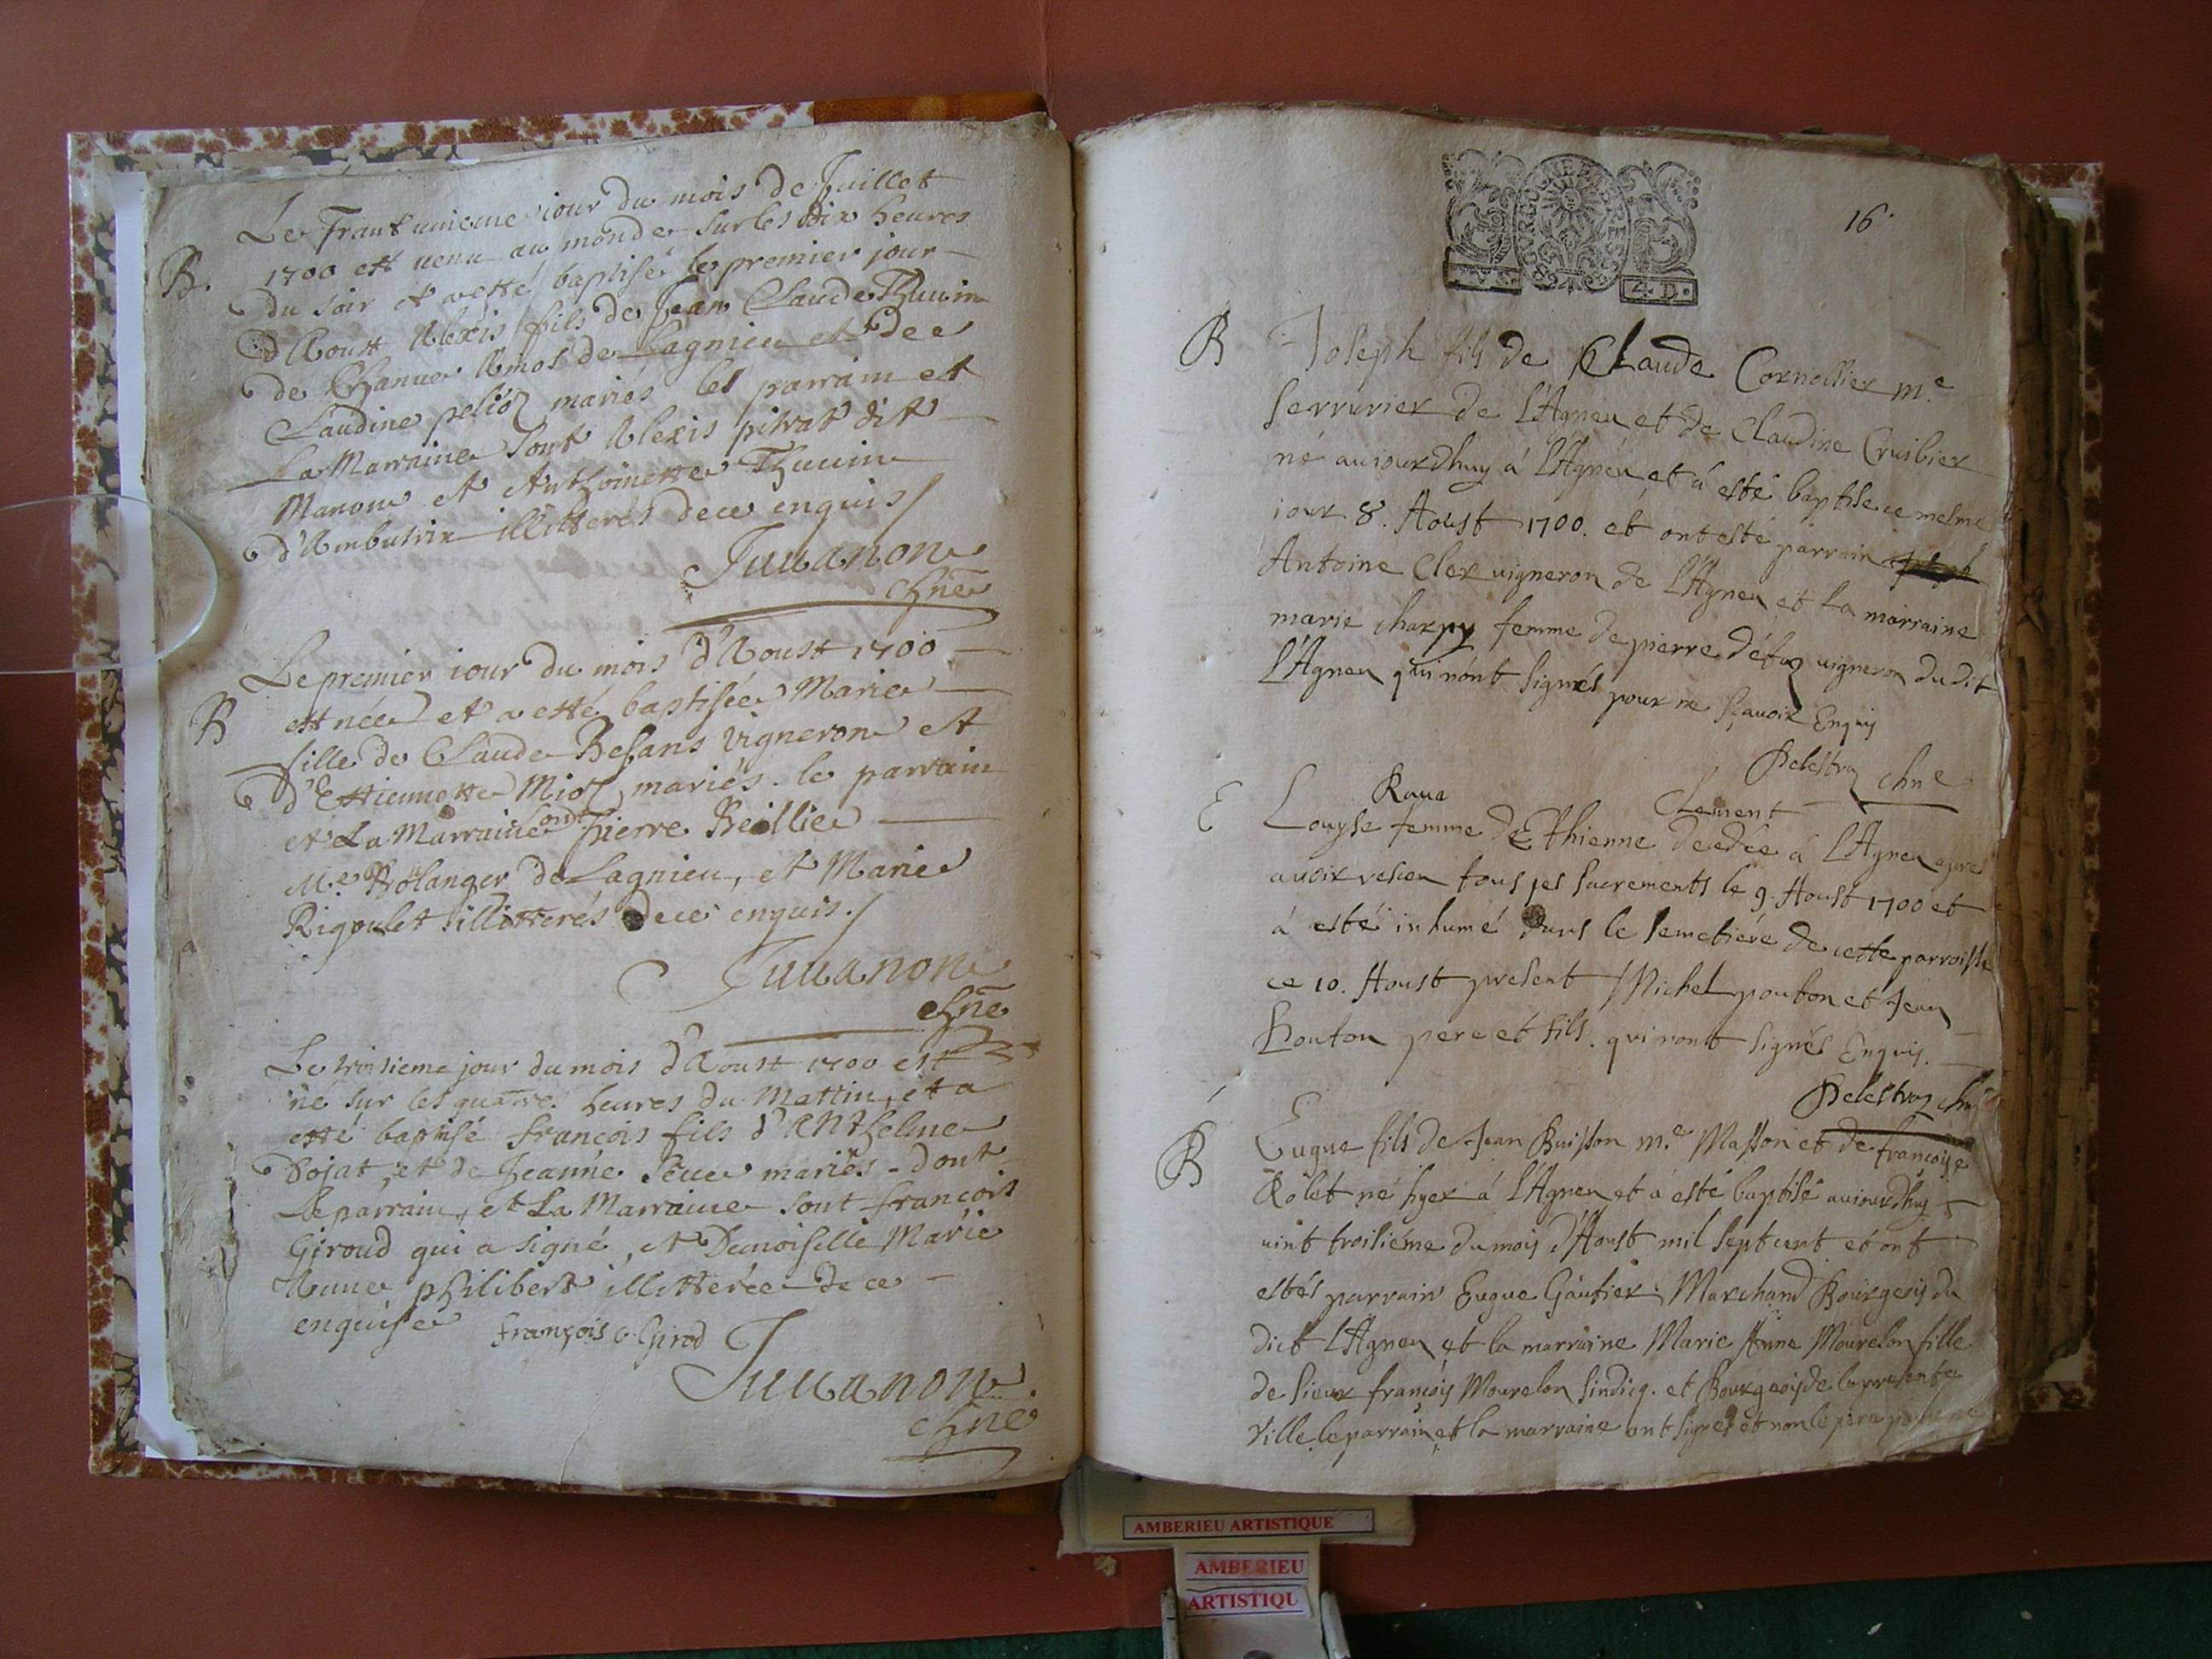 Le Trant unieme iour du mois de Juillet
B. 1700 est uenu au monde sur les dix heures
du soir et a esté baptisé le premier jour
d'Aoust Alexis fils de Jean Claude Thuuin
de Chanue Amos de Lagnieu et de
Claudine mariés les parrain et
La Marraine sont Alexis pitrat dit
Manon et Anthoinette Thuuin
d'Ambutrix illitterés de ce enquis /
Juuanon
chñe
Le premier iour du mois d'Aoust 1700
B est née et a esté baptisée Marie
fille de Claude Besans Vigneron et
d'Estiennette Mioz mariés. le parrain
et La Marraine sont pierre Beillie
Me. Bolanger de Lagnieu, et Marie
Rigoulet illitterés de ce enquis. /
Juuanon
chñe
Le troisieme jour du mois d'Aoust 1700 est
né sur les quatre heures du Mattin, et a
esté baptisé françois fils d'Anthelme
Dojat, et de Jeanne Seue mariés - dont
le parrain, et La Marraine sont françois
Giroud qui a signé, et Demoiselle Marie
Anne philibert illitterée de ce
enquise françois Girod
Juuanon
chñe
16.
GNE
4. D.
B Joseph fils de Claude Cornollier m.e
serrurier de L'Agneu et de Claudine Cruibier
né auiourdhuy á L'Agneu et á esté baptisé ce mesme
iour 8. Aoust 1700. et ont esté parrain
Antoine Cler uigneron de L'Agneu et la marraine
marie charpy femme de pierre uigneron dudit
L'Agneu qui n'ont signés pour ne sçauoir Enquis
Delestraz chne
Raua Clement
E Louyse femme de Ethienne decedée á L'Agneu apres
auoir receu tous ses sacrements le 9. Aoust 1700 et
á esté inhumé dans le semetiere de cette parroisse
ce 10. Aoust present Michel pouton et Jean
Pouton pere et fils. qui n'ont signés Enquis.
Delestraz chne
B Eugue fils de Jean Buisson m.e Masson et de françoise
Rolet né hyer á L'Agneu et á esté baptisé auiourdhuy
uint troisiéme du mois d'Aoust mil sept cent et ont
estés parrain Eugue Gautier Marchand Bourgeois du
dict L'Agneu et la marraine Marie Anne Mourelon fille
de sieur françois Mourelon sindicq. et Bourgeois de la presente
Ville. le parrain et la marraine ont signés et non le pere pour ne
AMBERIEU ARTISTIQUE
AMBERIEU
ARTISTIQU